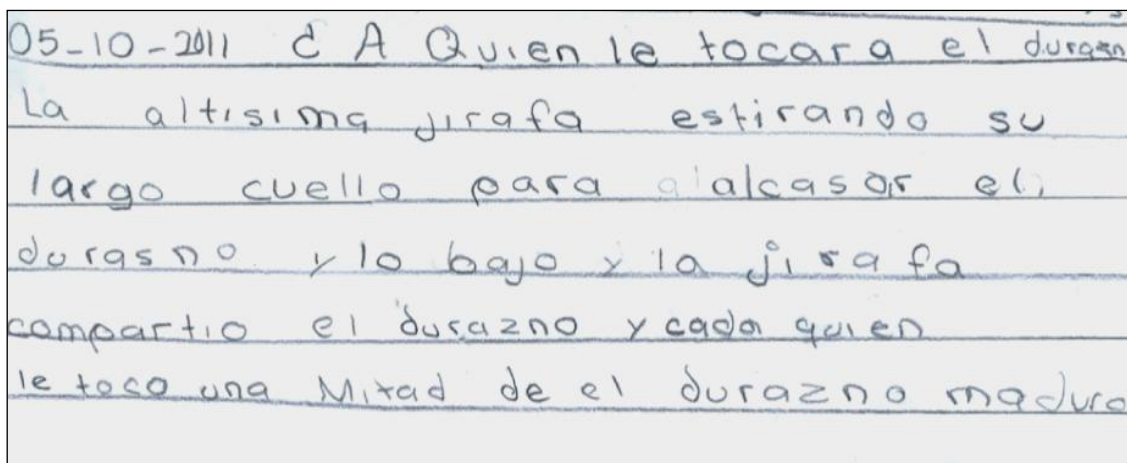 05-10-2011 ¿ A Quien le tocara el durazn
La altisima jirafa estirando su
largo cuello para alcasar el
durasno y lo bajo y la jirafa
compartio el durazno y cada quien
le toco una Mitad de el durazno maduro